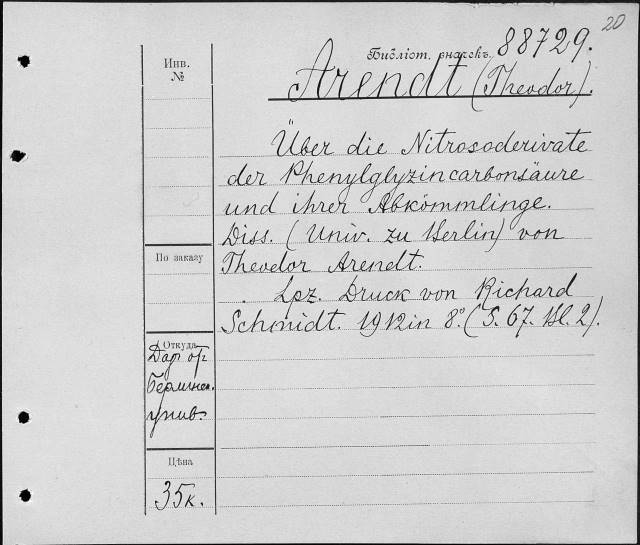 20
Библіот. значекъ. 88729.
Arendt (Theodor).
Über die Nitrosoderivate
der Phenylglyzincarbonsäure
und ihrer Abkömmlinge.
Diss. (Univ. zu Berlin) von
Theodor Arendt.
Lpz. Druck von Richard
Schmidt. 1912 in 8°. (S. 67. Bl. 2).
Инв.
№
По заказу
Откуда
Дар от
Берлинск.
унив.
Цѣна
35к.